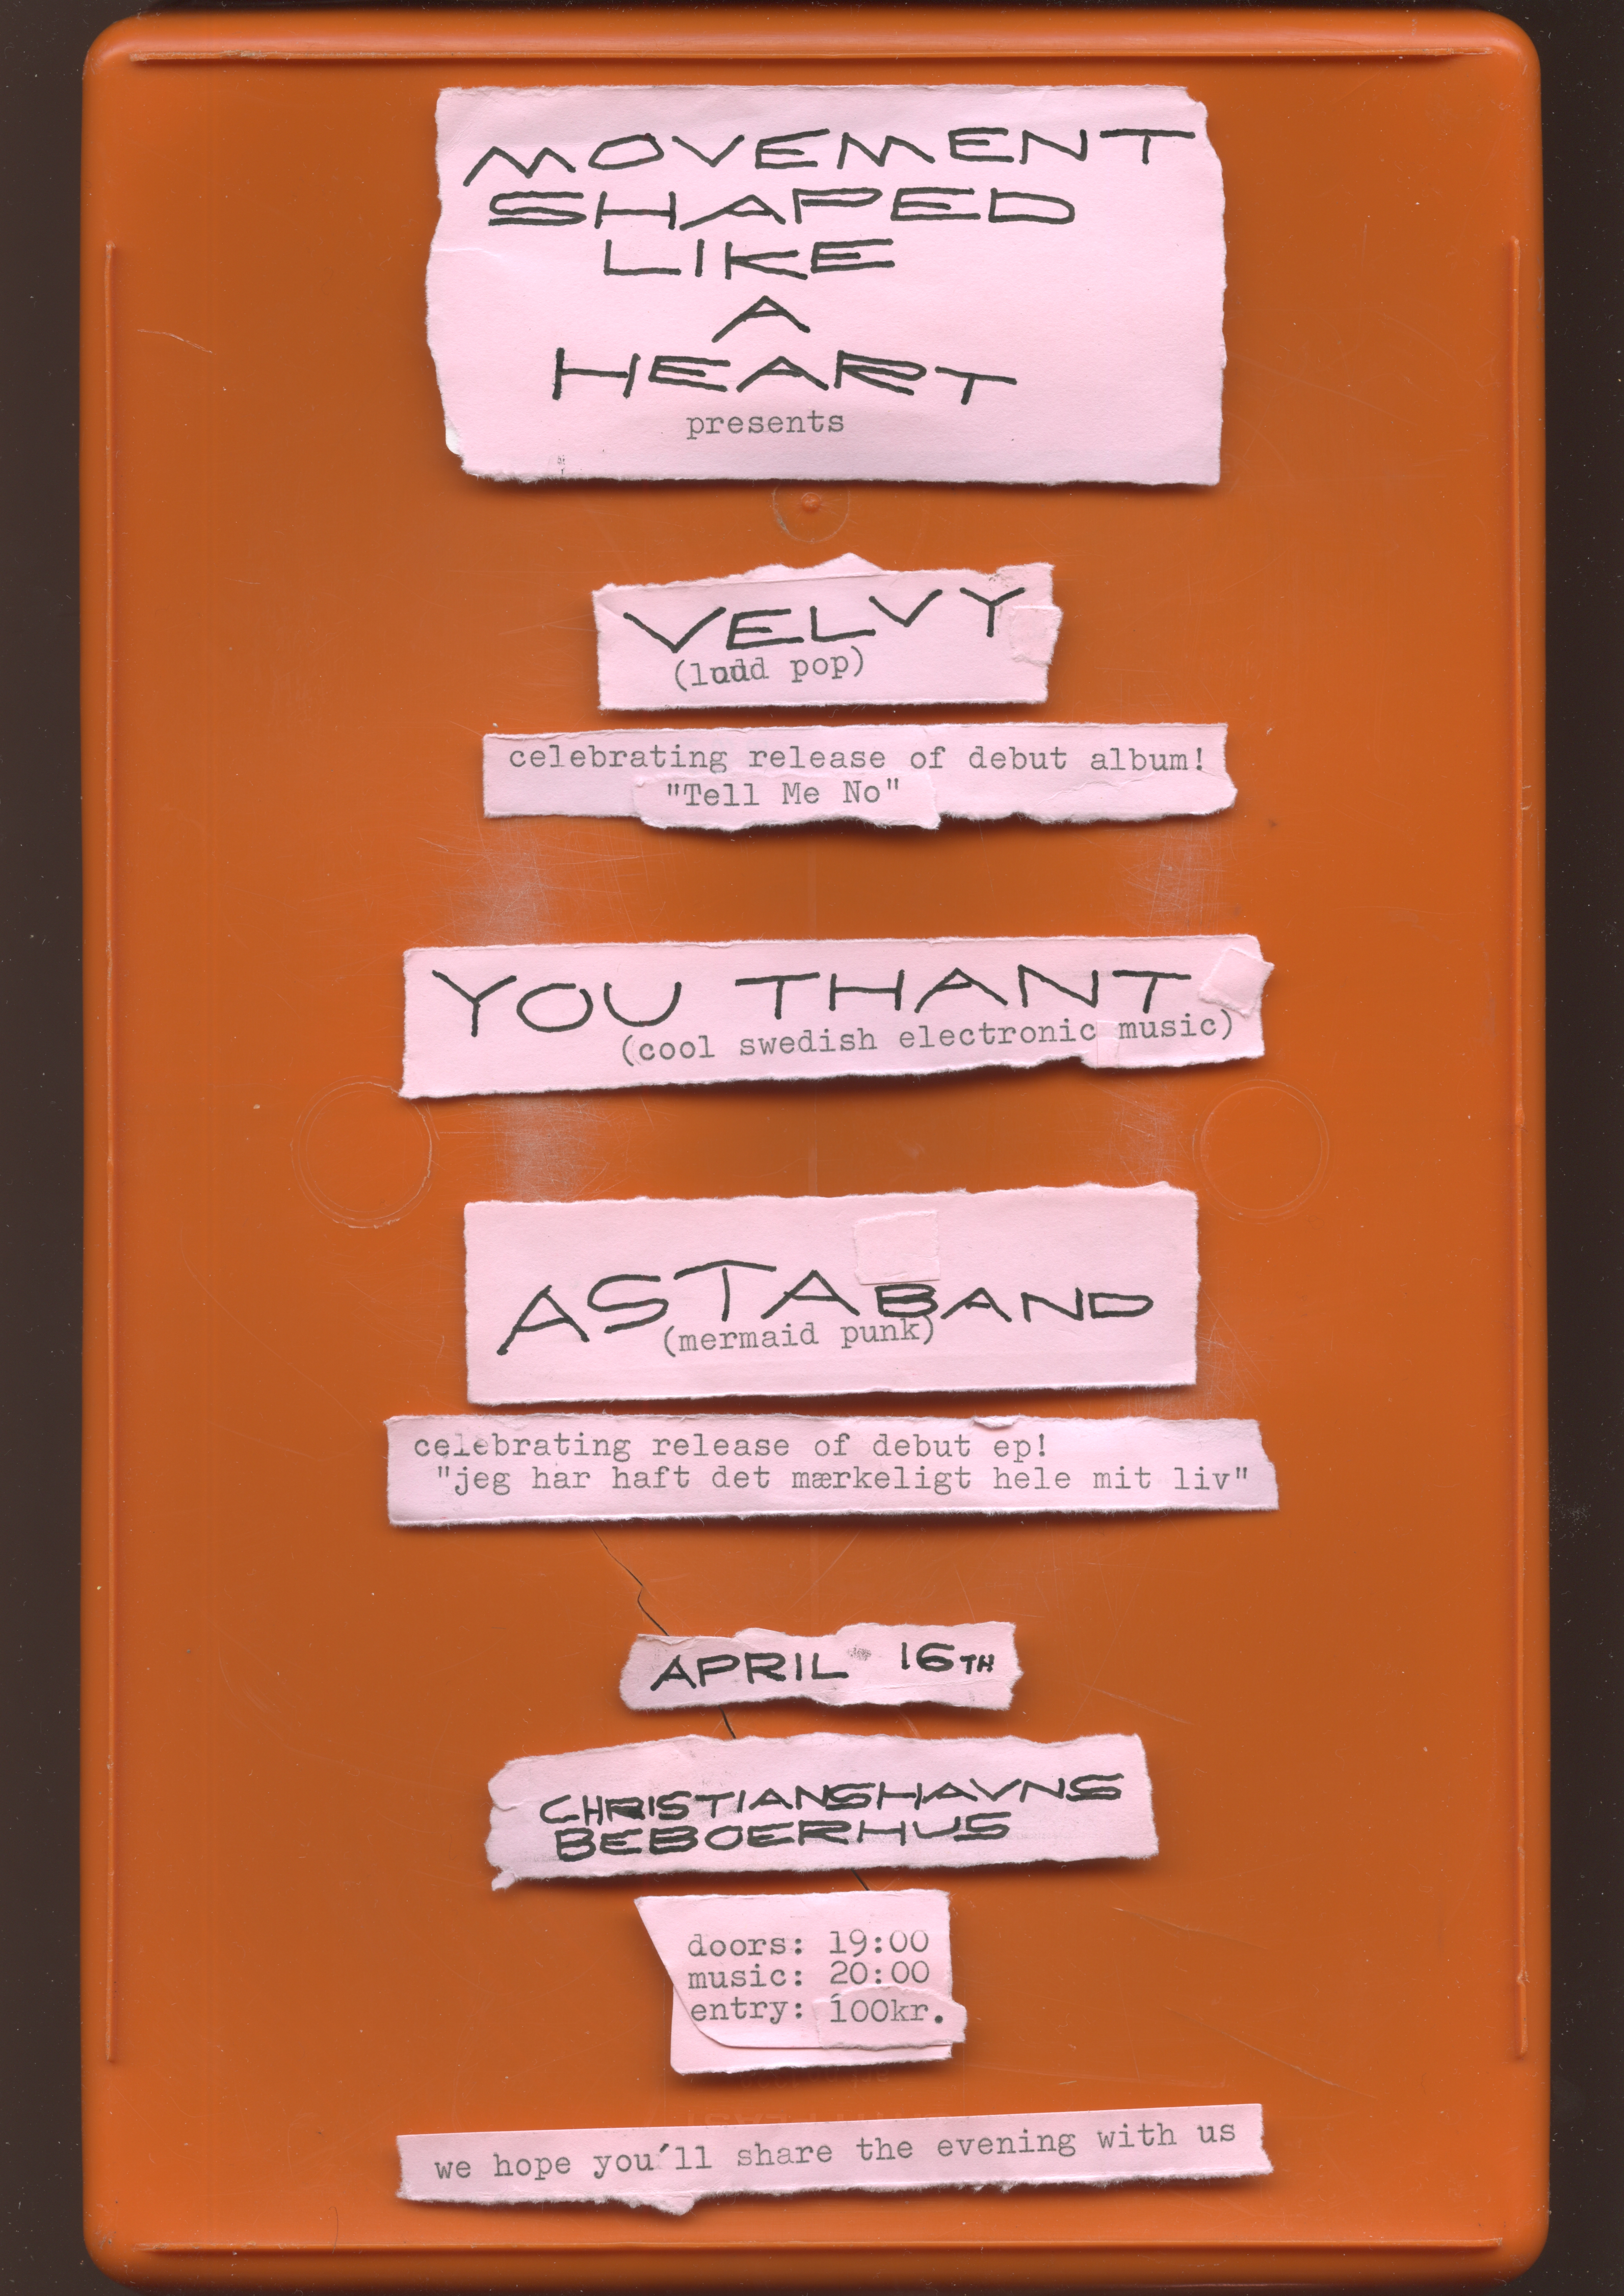 MOVEMENT
SHAPED
LIKE
A
HEART
presents
VELVY
(loud pop)
celebrating release of debut album!
"Tell Me No"
YOU THANT
(cool swedish electronic music)
ASTABAND
(mermaid punk)
celebrating release of debut ep!
"jeg har haft det mærkeligt hele mit liv"
APRIL 16TH
CHRISTIANSHAVNS
BEBOERHUS
doors: 19:00
music: 20:00
entry: 100kr.
we hope you'll share the evening with us